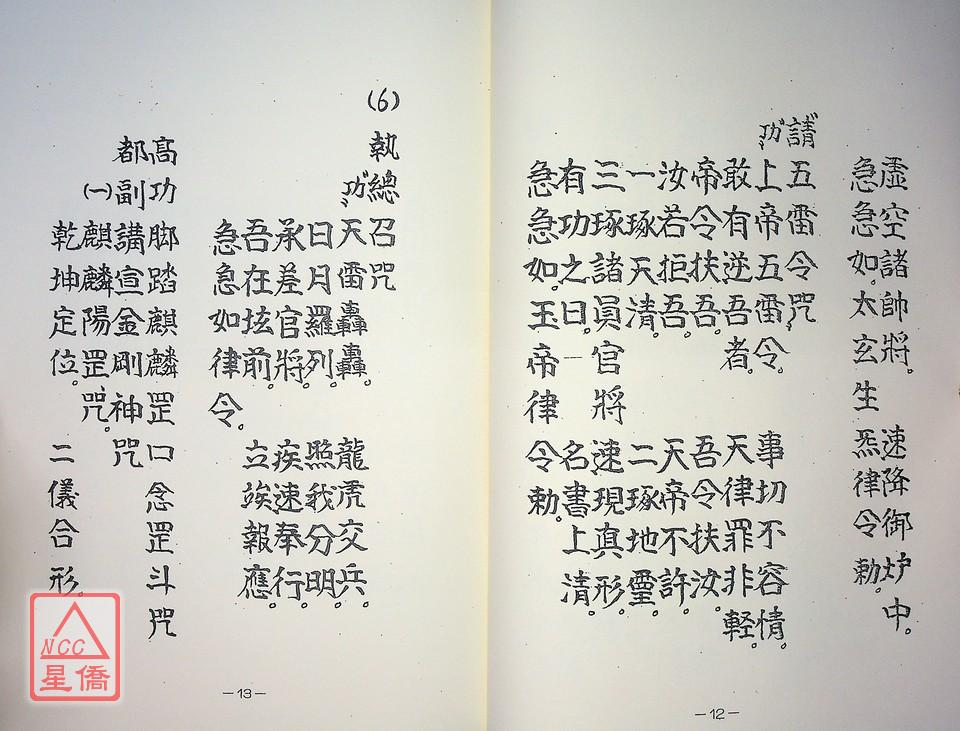 虛空諸帥將。速降御炉中。
急急如太玄生炁律令勅。
請五雷令咒
上帝五雷令。事切不容情。
敢有逆吾者。天律罪非輕。
帝令扶吾。吾令扶汝。
汝若拒吾。天帝不許。
一琢天清。二琢地靈。
三琢諸眞官將速現真形。
有功之日。名書上清。
急急如玉帝律令勅。
-12-
(6)執總召咒
天雷轟轟。龍虎交兵。
日月羅列。照我分明。
承差官將。疾速奉行。
吾在坛前。立竢報應。
急急如律令。
高功脚踏麒麟罡口念罡斗咒
都副講宣金剛神咒
(一)麒麟陽罡咒。
乾坤定位。二儀合形。
-13-
NCC
星僑